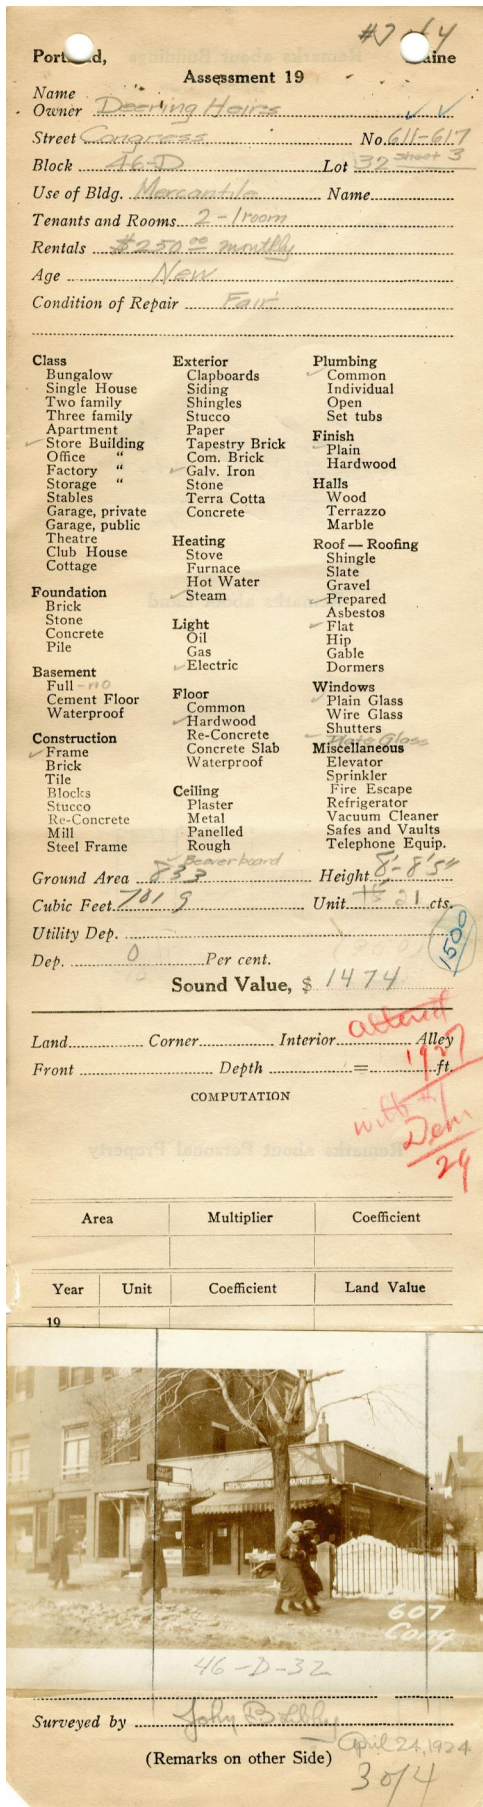 # 3 of 4
Portland, Maine
Assessment 19
Name
Owner Deering Heirs
Street Congress No. 611-617
Block 46-D Lot 32 Sheet 3
Use of Bldg. Mercantile Name
Tenants and Rooms 2-1 room
Rentals $250.00 monthly
Age New
Condition of Repair Fair
Class
Bungalow
Single House
Two family
Three family
Apartment
✓ Store Building
Office "
Factory "
Storage "
Stables
Garage, private
Garage, public
Theatre
Club House
Cottage
Foundation
Brick
Stone
Concrete
Pile
Basement
Full - no
Cement Floor
Waterproof
Construction
✓ Frame
Brick
Tile
Blocks
Stucco
Re-Concrete
Mill
Steel Frame
Exterior
Clapboards
Siding
Shingles
Stucco
Paper
Tapestry Brick
Com. Brick
✓ Galv. Iron
Stone
Terra Cotta
Concrete
Heating
Stove
Furnace
Hot Water
✓ Steam
Light
Oil
Gas
✓ Electric
Floor
Common
✓ Hardwood
Re-Concrete
Concrete Slab
Waterproof
Ceiling
Plaster
Metal
Panelled
Rough
✓ Beaverboard
Plumbing
✓ Common
Individual
Open
Set tubs
Finish
✓ Plain
Hardwood
Halls
Wood
Terrazzo
Marble
Roof — Roofing
Shingle
Slate
Gravel
✓ Prepared
Asbestos
✓ Flat
Hip
Gable
Dormers
Windows
✓ Plain Glass
Wire Glass
Shutters
✓ Plate Glass
Miscellaneous
Elevator
Sprinkler
Fire Escape
Refrigerator
Vacuum Cleaner
Safes and Vaults
Telephone Equip.
Ground Area 833 Height 8'-8'5"
Cubic Feet 7019 Unit 21 cts.
Utility Dep.
1500
Dep. 0 Per cent.
Sound Value, $ 1474
altered
Land Corner Interior Alley
1927
Front Depth = ft.
COMPUTATION
with #1
Dem
29
Area Multiplier Coefficient
Year Unit Coefficient Land Value
19
607
Cong
46-D-32
Surveyed by John B Libby
April 24, 1924
(Remarks on other Side)
3 of 4